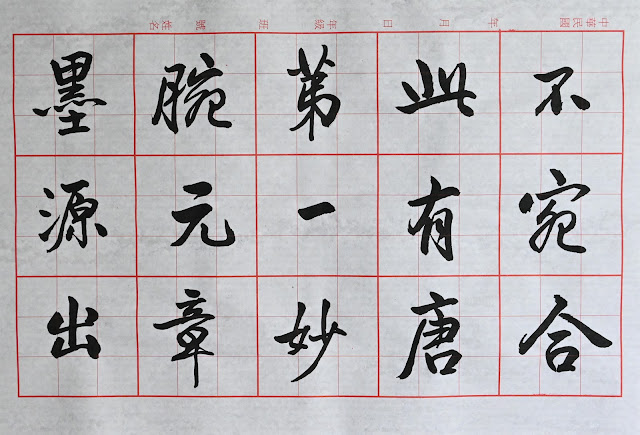 中華民國 年 月 日 年級 班 號 姓名
不宛合
此有唐
第一妙
腕元章
墨源出